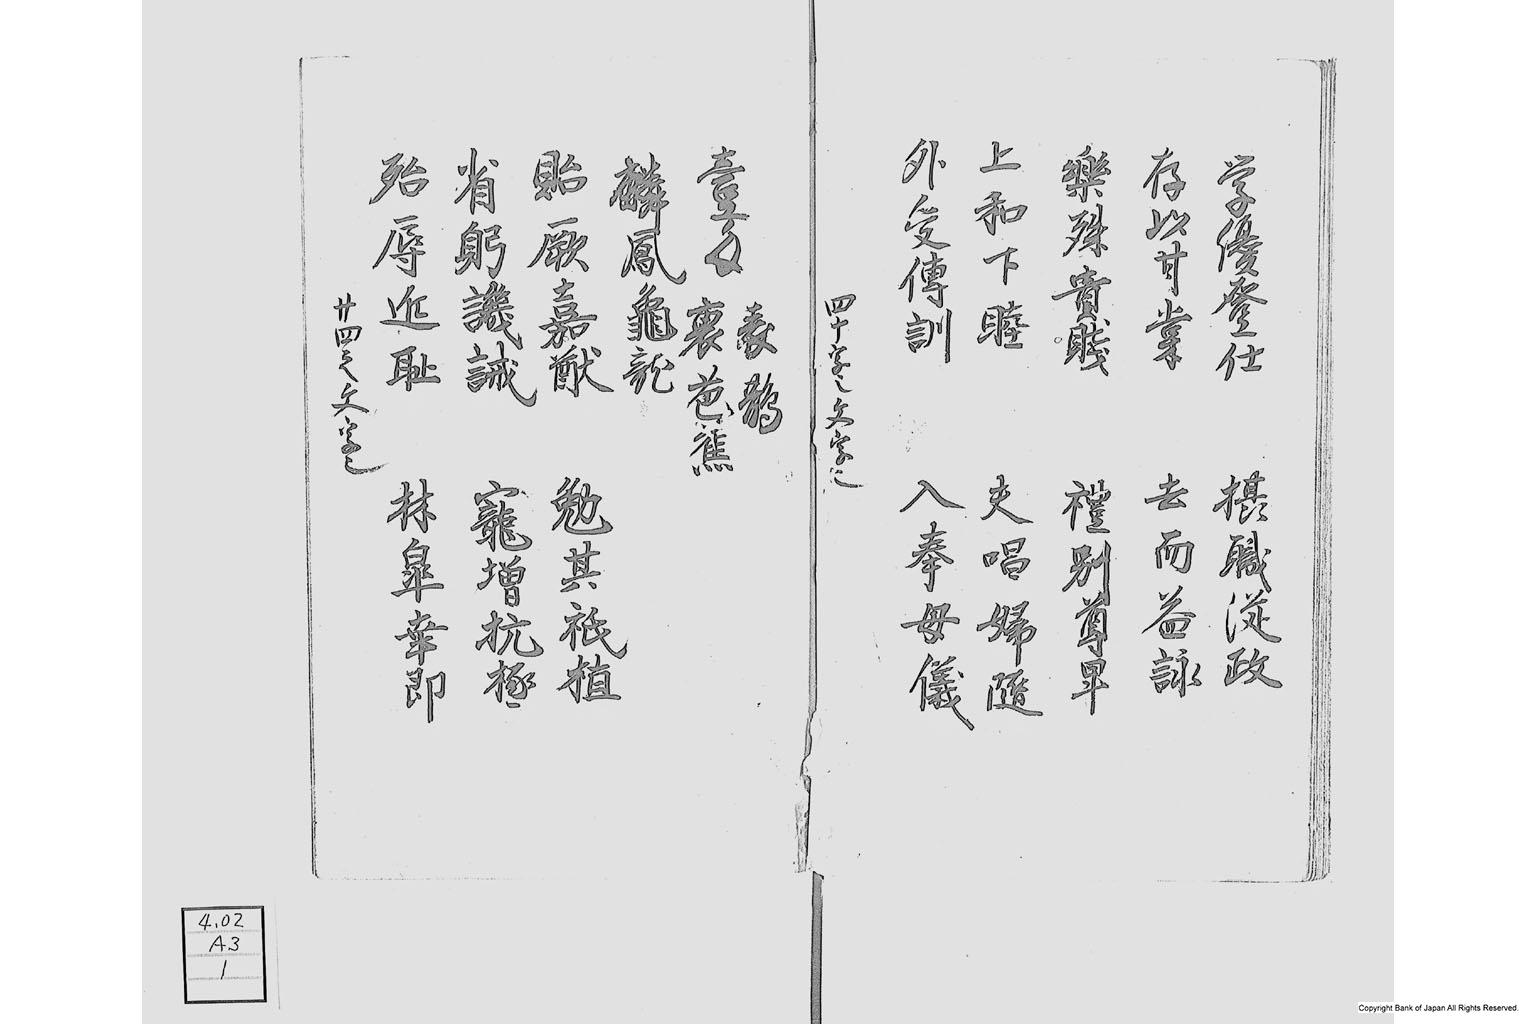 学優登仕 摂職從政
存以甘棠 去而益詠
樂殊貴賤 禮別尊卑
上和下睦 夫唱婦随
外受傅訓 入奉母儀
四十字之文字也
麟鳳龜龍
貽厥嘉猷 勉其祗植
省躬譏誡 寵增抗極
殆辱近耻 林皐幸即
廿四之文字也
4.02
A3
1
Copyright Bank of Japan All Rights Reserved.